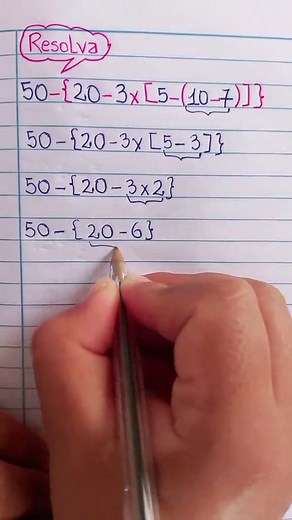 Resolva
50-{20-3x[5-(10-7)]}
50-{20-3x[5-3]}
50-{20-3x2}
50-{20-6}